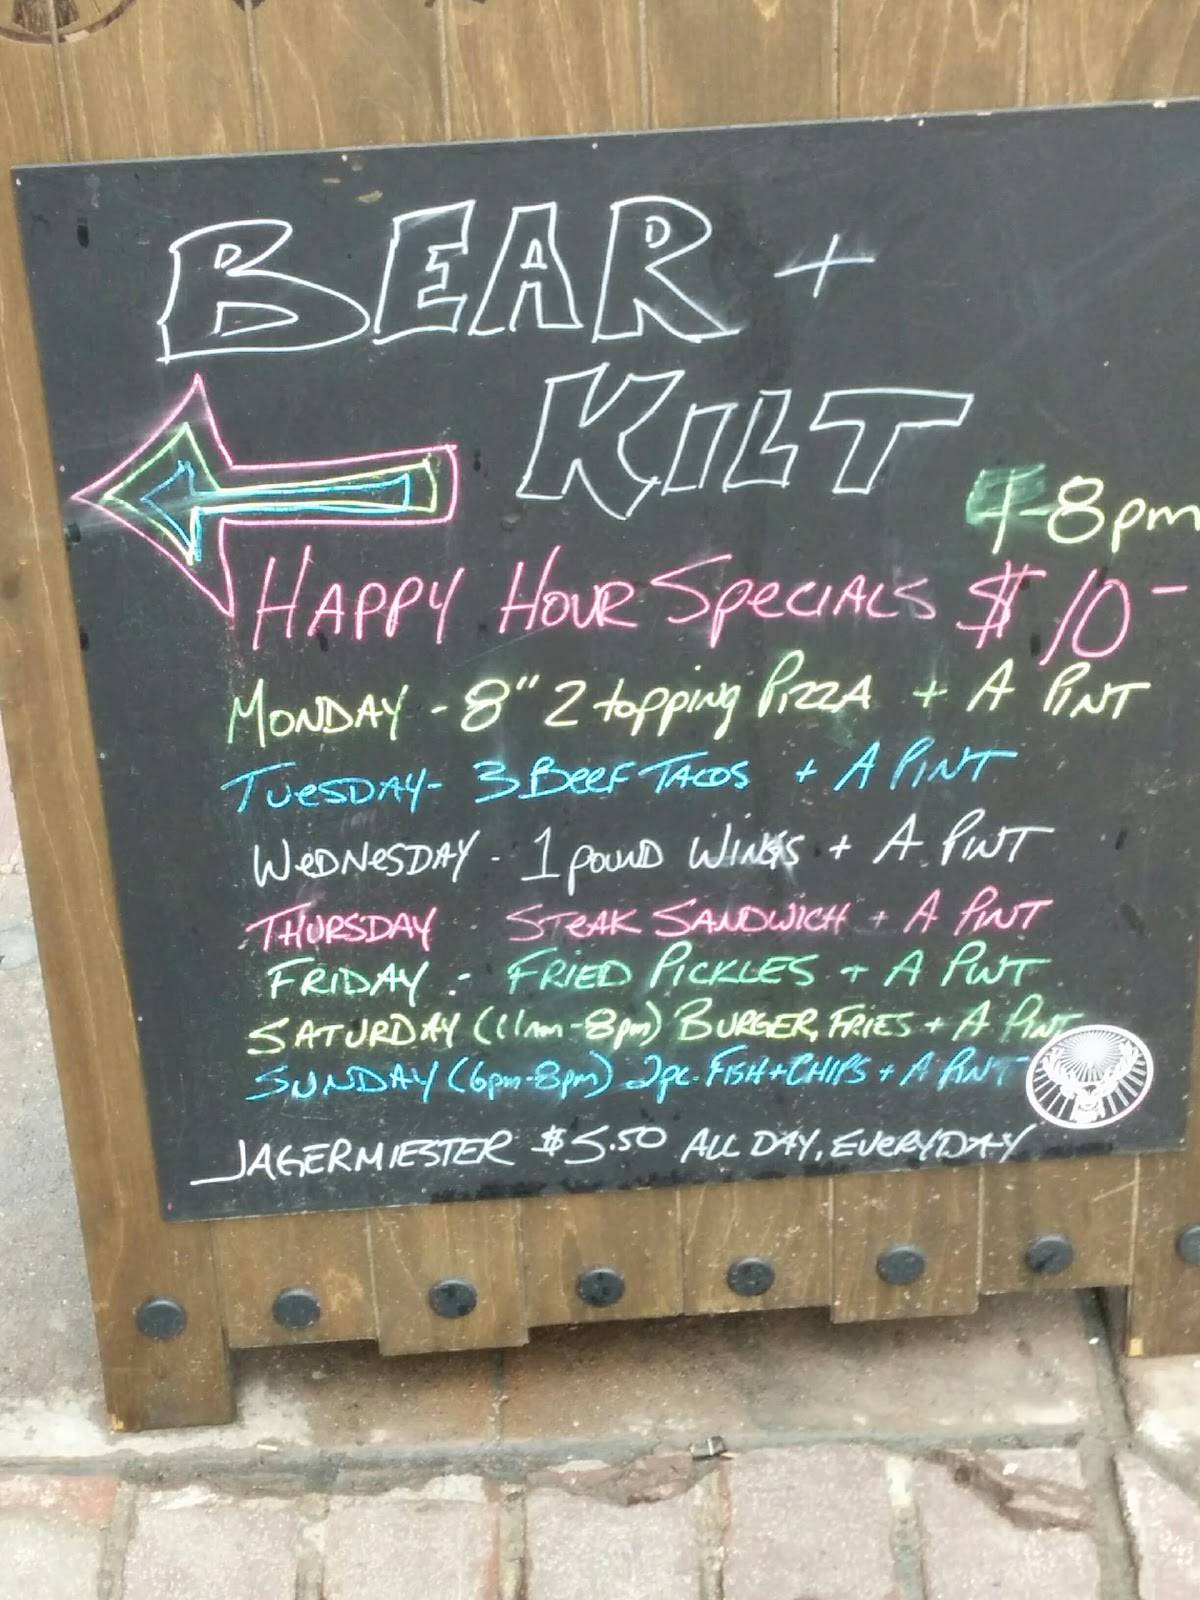 BEAR +
KILT
-8pm
HAPPY HOUR SPECIALS $10-
MONDAY - 8" 2 topping PIZZA + A PINT
TUESDAY- 3 BEEF TACOS + A PINT
WEDNESDAY - 1 POUND WINGS + A PINT
THURSDAY - STEAK SANDWICH + A PINT
FRIDAY - FRIED PICKLES + A PINT
SATURDAY (11am-8pm) BURGER, FRIES + A PINT
SUNDAY (6pm-8pm) 2pc. FISH+CHIPS + A PINT
JAGERMIESTER $5.50 ALL DAY, EVERYDAY